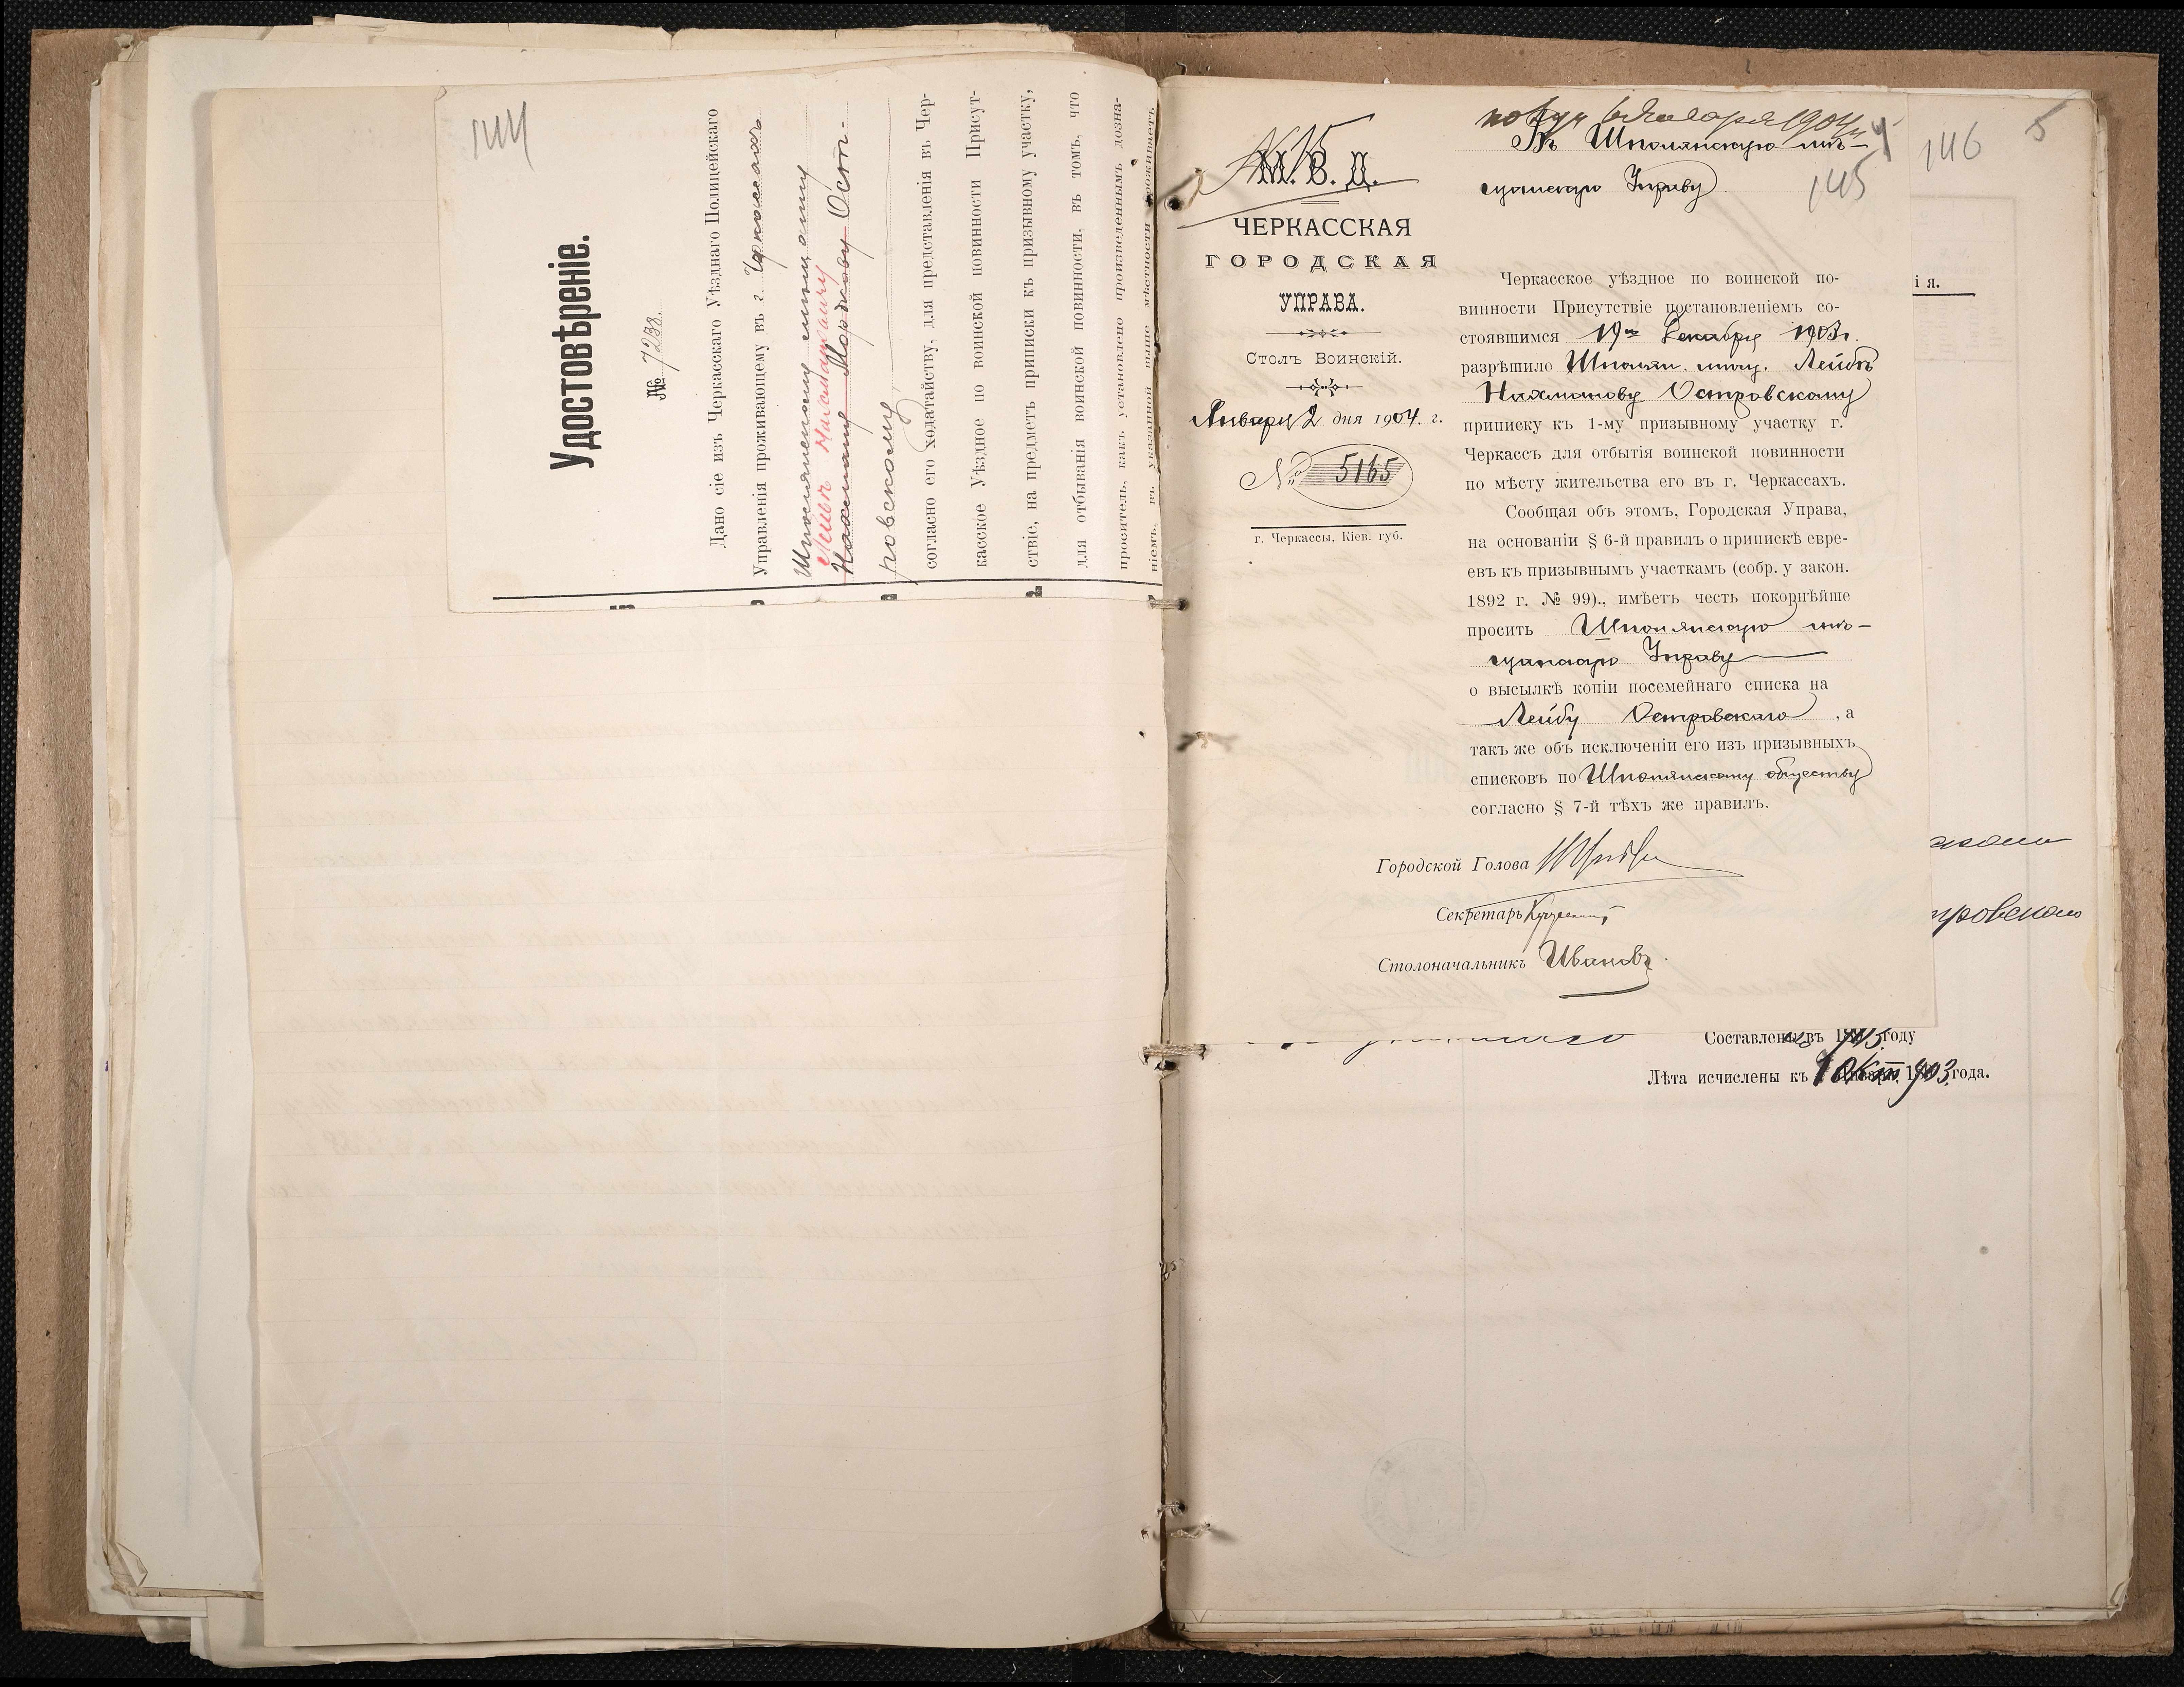 144
Удостовѣреніе.
№ 7238.
Дано сіе изъ Черкасскаго Уѣзднаго Полицейскаго
Управленія проживающему въ г. Черкассахъ
Шполянскому мѣщанину
Лейбѣ Нахмановичу
Нахману Мордкову Ост-
ровскому,
согласно его ходатайству, для представленія въ Чер-
касское Уѣздное по воинской повинности Присут-
ствіе, на предметъ приписки къ призывному участку,
для отбыванія воинской повинности, въ томъ, что
проситель, какъ установлено произведеннымъ дозна-
ніемъ, въ указанной выше мѣстности проживаетъ
№ 15
М. В. Д.
ЧЕРКАССКАЯ
ГОРОДСКАЯ
УПРАВА.
Столъ Воинскій.
Января 2 дня 1904 г.
№ 5165
г. Черкассы, Кіев. губ.
получ 6 Января 1904 г
Въ Шполянскую мѣ-
щанскую Управу.
145
Черкасское уѣздное по воинской по-
винности Присутствіе постановленіемъ со-
стоявшимся 19го Декабря 1903 г.
разрѣшило Шполян. мѣщ. Лейбѣ
Нахманову Островскому
приписку къ 1-му призывному участку г.
Черкассъ для отбытія воинской повинности
по мѣсту жительства его въ г. Черкассахъ.
Сообщая объ этомъ, Городская Управа,
на основаніи § 6-й правилъ о припискѣ евре-
евъ къ призывнымъ участкамъ (собр. у закон.
1892 г. № 99)., имѣетъ честь покорнѣйше
просить Шполянскую мѣ-
щанскую Управу
о высылкѣ копіи посемейнаго списка на
Лейбу Островскаго, а
такъ же объ исключеніи его изъ призывныхъ
списковъ по Шполянскому обществу
согласно § 7-й тѣхъ же правилъ.
Городской Голова
Секретарь
Столоначальникъ Ивановъ.
146
5
ія.
ровскаго
Составленъ въ 1903 году
Лѣта исчислены къ 1 Окт 1903 года.